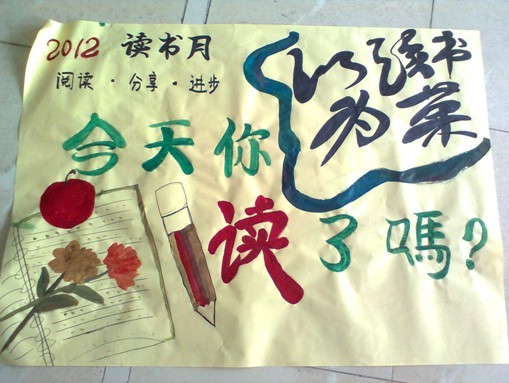 2012 读书月
阅读·分享·进步
以读书
为荣
今天你
读了嗎?